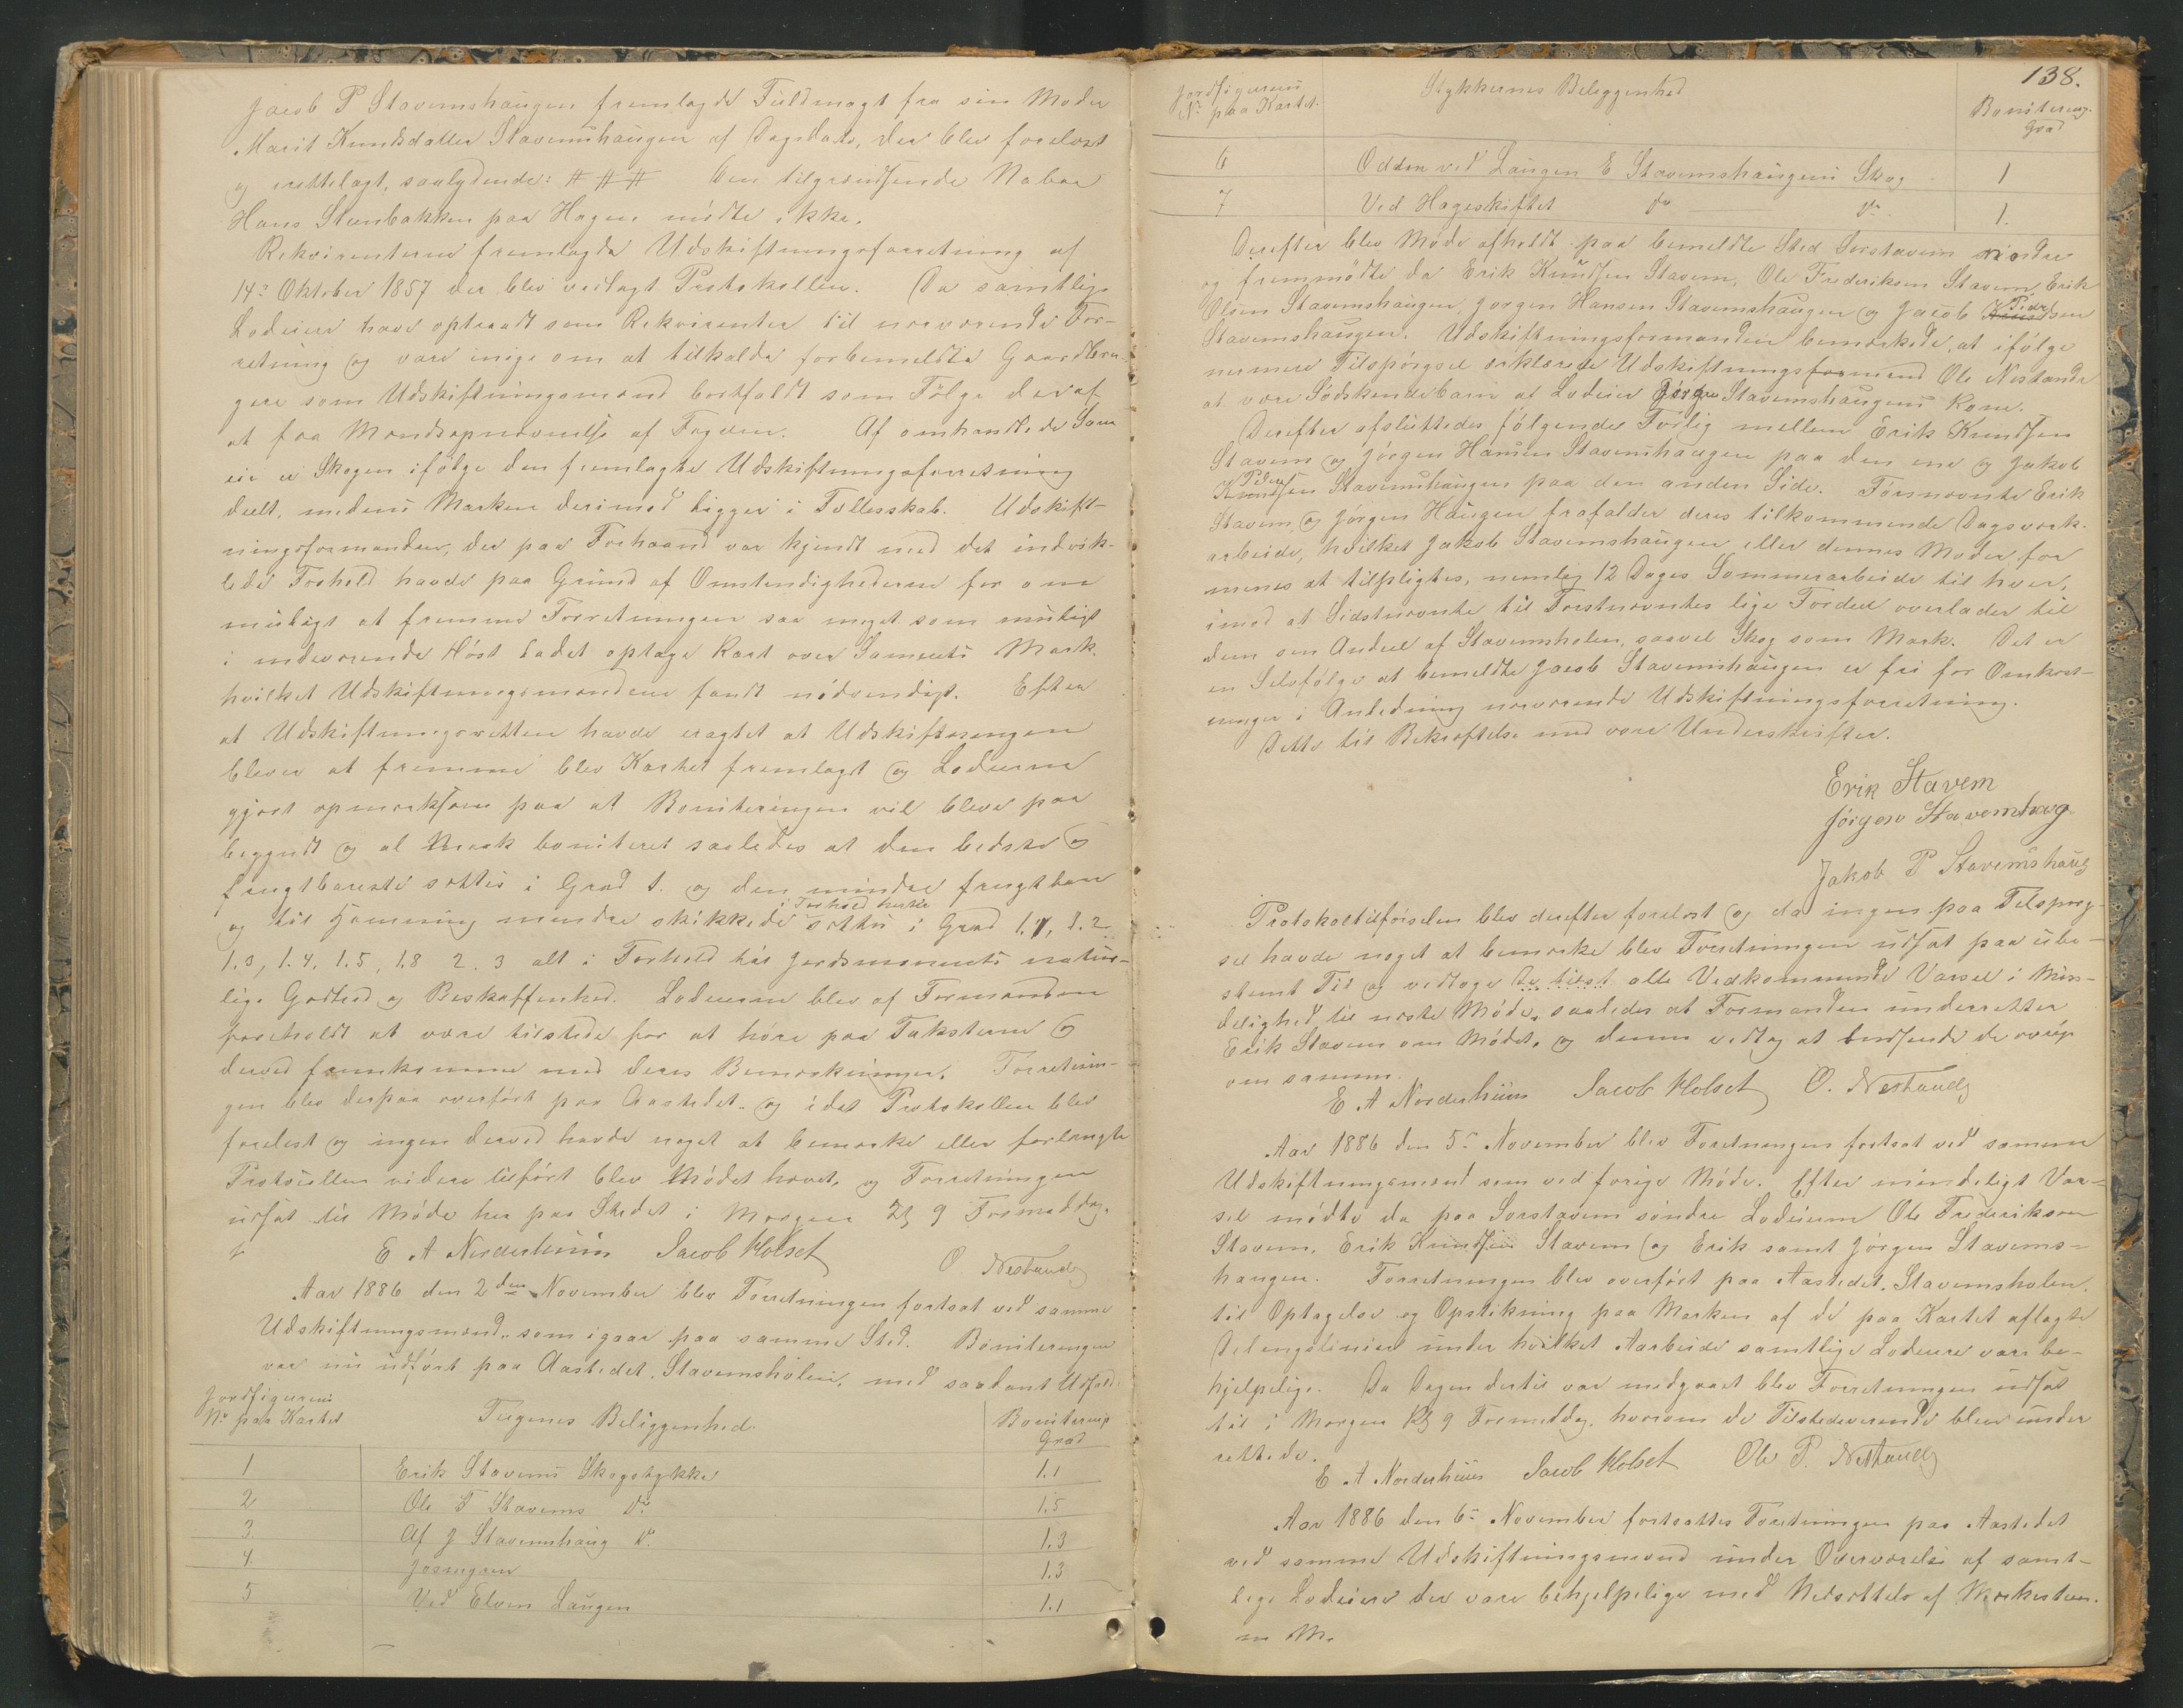 Jacob P Stavemshaugen fremlagde Fuldmagt fra sin Moder
Marit Knudsdatter Stavemshaugen af Dagsdato, der blev forelæst
og irettelagt, saalydende: # # # Den tilgrændsende Nabo
Hans Steenbakken paa Hagen mødte ikke.
Rekvirenterne fremlagde Udskiftningsforretning af
14de Oktober 1857 der blev vedlagt Protokollen. Da samtlige
Lodeiere have optraadt som Rekvirenter til nærværende For-
retning og vare enige om at tilkalde forbemeldte Gaardbru-
gere som Udskiftningsmænd bortfaldt som Følge deraf
at faa Mandsopnævnelse af Fogden. Af omhandlede Sam
eie er Skogen ifølge den fremlagte Udskiftningsforretning
deelt, medens Marken derimod ligger i Fællesskab. Udskift-
ningsformanden, der paa Forhaand var kjendt med det indvik-
lede Forhold havde paa Grund af Omstændighederne for om
muligt at fremme Forretningen saa meget som muligt
i indeværende Høst ladet optage Kart over Sameiets Mark.
hvilket Udskiftningsmændene fandt nødvendigt. Efter
at Udskiftningsretten havde eragtet at Udskiftningen
bliver at fremme blev Kartet fremlagt og Lodeierne
gjort opmærksom paa at Boniteringen vil blive paa
begyndt og al Mark boniteret saaledes at den bedste og
frugtbareste sættes i Grad 1. og den mindre frugtbare
i Forhold hertil
og til Havning mindre skikkede sættes i Grad 1.1, 1.2
1.3, 1.4, 1.5, 1.8 2. 3 alt i Forhold til Jordsmonnets natur-
lige Godhed og Beskaffenhed. Lodeierne blev af Formanden
foreholdt at være tilstede for at høre paa Taksterne og
derved fremkomme med deres Bemærkninger. Forretnin-
gen blev derpaa overført paa Aastedet og idet Protokollen blev
forelæst og ingen derved havde noget at bemærke eller forlangte
Protocollen videre tilført blev Mødet hævet, og Forretningen
udsat til Møde her paa Stedet i Morgen Kl 9 Formiddag.
E A Norderhuus Jacob Holset O. Nestande
Aar 1886 den 2den November blev Forretningen fortsat ved samme
Udskiftningsmænd som igaar paa samme Sted. Boniteringen
var nu udført paa Aastedet, Stavemsholen, med saadant Udfald.
Jordfigurens
No paa Kartet Teigenes Beliggenhed. Boniterings
Grad
1 Erik Stavems Skogstykke 1.1
2 Ole F Stavems do 1.5
3. Af J Stavemshaug do 1.3
4. 1.3
5 Ved Elven Laugen 1.1
138.
Jordfigurens
No paa Kartet. Stykkernes Beliggenhed Boniterings
Grad
6 Odden ved Laugen E Stavemshaugens Skog 1
7 Ved Hageskiftet do do 1.
Derefter blev Møde afholdt paa bemeldte Sted Sorstavem søndre
og fremmødte da Erik Knudsen Stavem, Ole Frederiksen Stavem, Erik
Olsen Stavemshaugen, Jørgen Hansen Stavemshaugen og Jacob Peder
Stavemshaugen. Udskiftningsformanden bemærkede, at ifølge
nærmere Tilspørgsel erklærede Udskiftningsformand Ole Nestande
at være Sødskendebarn af Lodeier Jørgen Stavemshaugens Kone.
Derefter afsluttedes følgende Forlig mellem Erik Knudsen
Stavem og Jørgen Hansen Stavemshaugen paa den ene og Jakob
Pedersen Stavemshaugen paa den anden Side. Førnævnte Erik
Stavem og Jørgen Haugen frafalder deres tilkommende Dagsværk-
arbeide, hvilket Jakob Stavemshaugen eller dennes Moder for
menes at tilpligtes, nemlig 12 Dages Sommerarbeide til hver,
imod at Sidstnævnte til Førstnævntes lige Fordeel overlader til
dem sin Andeel af Stavemsholen, saavel Skog som Mark. Det er
en Selvfølge at bemeldte Jacob Stavemshaugen er fri for Omkost-
ninger i Anledning nærværende Udskiftningsforretning.
Dette til Bekræftelse med vore Underskrifter.
Erik Stavem
Jørgen Stavemshaug
Jakob P Stavemshaug
Protokoltilførselen blev derefter forelæst og da ingen paa Tilspørg-
sel havde noget at bemærke blev Forretningen udsat paa ube-
stemt Tid og vedtoge alle Vedkommende Varsel i Min-
delighed til næste Møde, saaledes at Formanden underretter
Erik Stavem om Mødet, og denne vedtog at budsende de øvrige
om samme.
E A Norderhuus Jacob Holset O. Nestande
Aar 1886 den 5te November blev Forretningen fortsat ved samme
Udskiftningsmænd som ved forrige Møde. Efter mindeligt Var-
sel mødte da paa Sorstavem søndre Lodeierne Ole Frederiksen
Stavem, Erik Knudsen Stavem og Erik samt Jørgen Stavems-
haugen. Forretningen blev overført paa Aastedet, Stavemsholen.
til Optagelse og Opstikning paa Marken af de paa Kartet aflagte
Delingslinier under hvilket Aarbeide samtlige Lodeiere vare be-
hjelpelige. Da Dagen dertil var medgaaet blev Forretningen udsat
til i Morgen Kl 9 Formiddag, hvorom de Tilstedeværende blev under
rettede.
E A Norderhuus Jacob Holset Ole P. Nestande
Aar 1886 den 6te November fortsattes Forretningen paa Aastedet
ved samme Udskiftningsmænd under Overværelse af samt-
lige Lodeiere der vare behjelpelige med Nedsættelse af Merkesteen
m M.